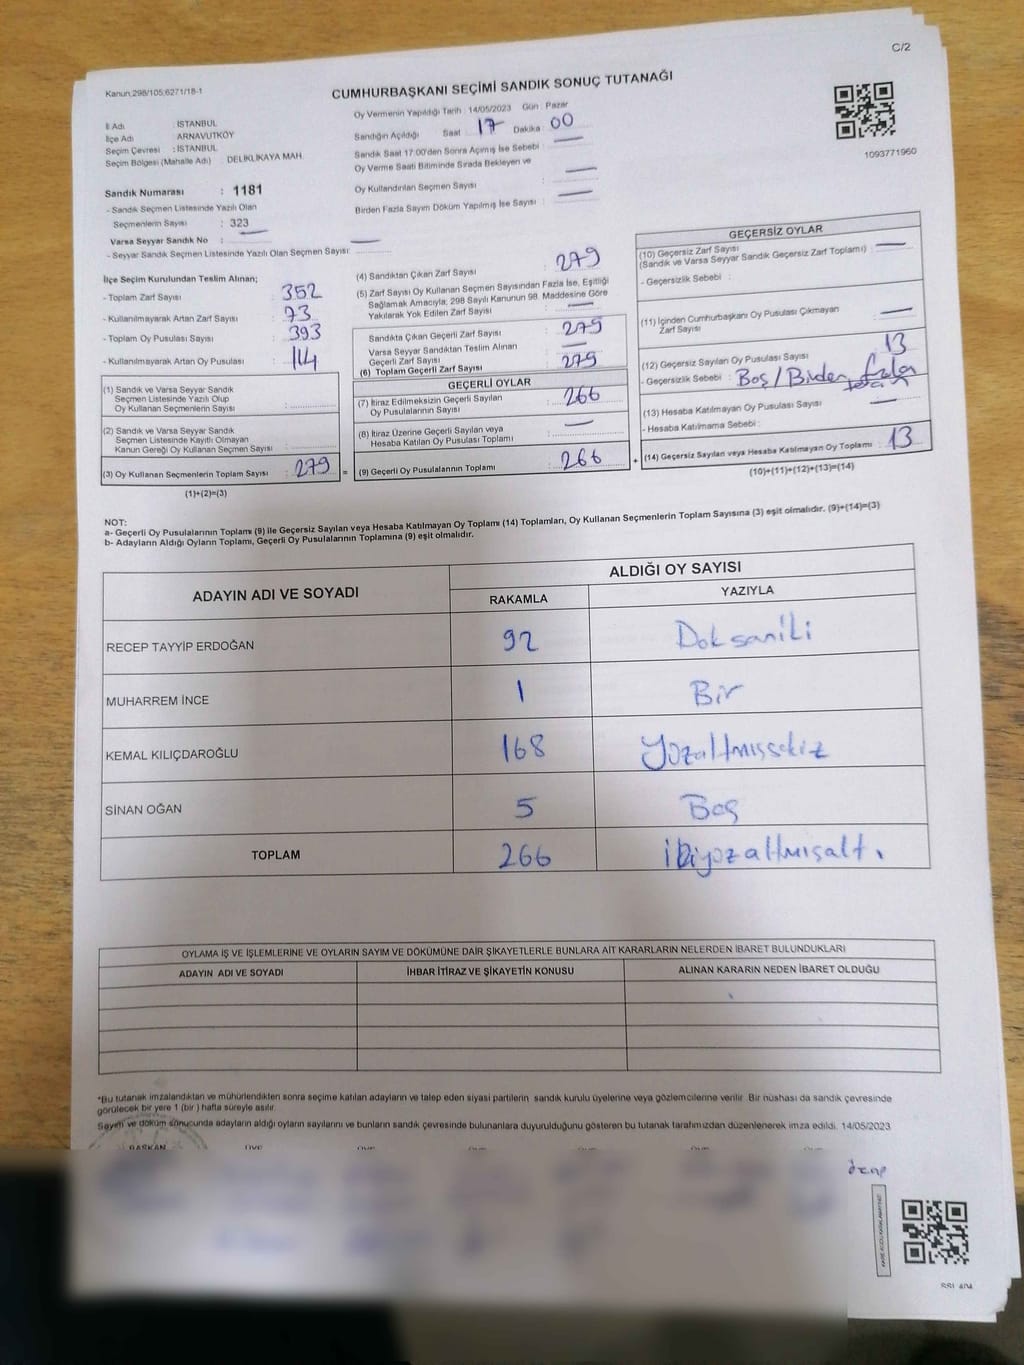 C/2
Kanun:298/105;6271/18-1
CUMHURBAŞKANI SEÇİMİ SANDIK SONUÇ TUTANAĞI
İl Adı : İSTANBUL
İlçe Adı : ARNAVUTKÖY
Seçim Çevresi : İSTANBUL
Seçim Bölgesi (Mahalle Adı) : DELİKLİKAYA MAH.
Sandık Numarası : 1181
- Sandık Seçmen Listesinde Yazılı Olan
Seçmenlerin Sayısı : 323
Varsa Seyyar Sandık No :
- Seyyar Sandık Seçmen Listesinde Yazılı Olan Seçmen Sayısı:
Oy Vermenin Yapıldığı Tarih : 14/05/2023 Gün : Pazar
Sandığın Açıldığı Saat : 17 Dakika : 00
Sandık Saat 17:00'den Sonra Açımış İse Sebebi :
Oy Verme Saati Bitiminde Sırada Bekleyen ve
Oy Kullandırılan Seçmen Sayısı :
Birden Fazla Sayım Döküm Yapılmış İse Sayısı :
1093771960
İlçe Seçim Kurulundan Teslim Alınan;
- Toplam Zarf Sayısı : 352
- Kullanılmayarak Artan Zarf Sayısı : 73
- Toplam Oy Pusulası Sayısı : 393
- Kullanılmayarak Artan Oy Pusulası : 114
(1) Sandık ve Varsa Seyyar Sandık
Seçmen Listesinde Yazılı Olup
Oy Kullanan Seçmenlerin Sayısı :
(2) Sandık ve Varsa Seyyar Sandık
Seçmen Listesinde Kayıtlı Olmayan
Kanun Gereği Oy Kullanan Seçmen Sayısı :
(3) Oy Kullanan Seçmenlerin Toplam Sayısı : 279 =
(1)+(2)=(3)
(4) Sandıktan Çıkan Zarf Sayısı : 279
(5) Zarf Sayısı Oy Kullanan Seçmen Sayısından Fazla İse, Eşitliği
Sağlamak Amacıyla; 298 Sayılı Kanunun 98. Maddesine Göre
Yakılarak Yok Edilen Zarf Sayısı :
Sandıkta Çıkan Geçerli Zarf Sayısı : 279
Varsa Seyyar Sandıktan Teslim Alınan
Geçerli Zarf Sayısı :
(6) Toplam Geçerli Zarf Sayısı : 279
GEÇERLİ OYLAR
(7) İtiraz Edilmeksizin Geçerli Sayılan
Oy Pusulalarının Sayısı : 266
(8) İtiraz Üzerine Geçerli Sayılan veya
Hesaba Katılan Oy Pusulası Toplamı :
(9) Geçerli Oy Pusulalarının Toplamı : 266 +
GEÇERSİZ OYLAR
(10) Geçersiz Zarf Sayısı
(Sandık ve Varsa Seyyar Sandık Geçersiz Zarf Toplamı) :
- Geçersizlik Sebebi :
(11) İçinden Cumhurbaşkanı Oy Pusulası Çıkmayan
Zarf Sayısı :
(12) Geçersiz Sayılan Oy Pusulası Sayısı : 13
- Geçersizlik Sebebi : Boş / Birden fazla
(13) Hesaba Katılmayan Oy Pusulası Sayısı :
- Hesaba Katılmama Sebebi :
(14) Geçersiz Sayılan veya Hesaba Katılmayan Oy Toplamı : 13
(10)+(11)+(12)+(13)=(14)
NOT:
a- Geçerli Oy Pusulalarının Toplamı (9) ile Geçersiz Sayılan veya Hesaba Katılmayan Oy Toplamı (14) Toplamları, Oy Kullanan Seçmenlerin Toplam Sayısına (3) eşit olmalıdır. (9)+(14)=(3)
b- Adayların Aldığı Oyların Toplamı, Geçerli Oy Pusulalarının Toplamına (9) eşit olmalıdır.
ADAYIN ADI VE SOYADI ALDIĞI OY SAYISI
RAKAMLA YAZIYLA
RECEP TAYYİP ERDOĞAN 92 Doksaniki
MUHARREM İNCE 1 Bir
KEMAL KILIÇDAROĞLU 168 Yüzaltmışsekiz
SİNAN OĞAN 5 Beş
TOPLAM 266 ikiyüzaltmışaltı
OYLAMA İŞ VE İŞLEMLERİNE VE OYLARIN SAYIM VE DÖKÜMÜNE DAİR ŞİKAYETLERLE BUNLARA AİT KARARLARIN NELERDEN İBARET BULUNDUKLARI
ADAYIN ADI VE SOYADI İHBAR İTİRAZ VE ŞİKAYETİN KONUSU ALINAN KARARIN NEDEN İBARET OLDUĞU
*Bu tutanak imzalandıktan ve mühürlendikten sonra seçime katılan adayların ve talep eden siyasi partilerin sandık kurulu üyelerine veya gözlemcilerine verilir. Bir nüshası da sandık çevresinde
görülecek bir yere 1 (bir) hafta süreyle asılır.
Sayım ve döküm sonucunda adayların aldığı oyların sayılarını ve bunların sandık çevresinde bulunanlara duyurulduğunu gösteren bu tutanak tarafımızdan düzenlenerek imza edildi. 14/05/2023
BAŞKAN ÜYE ÜYE ÜYE ÜYE ÜYE